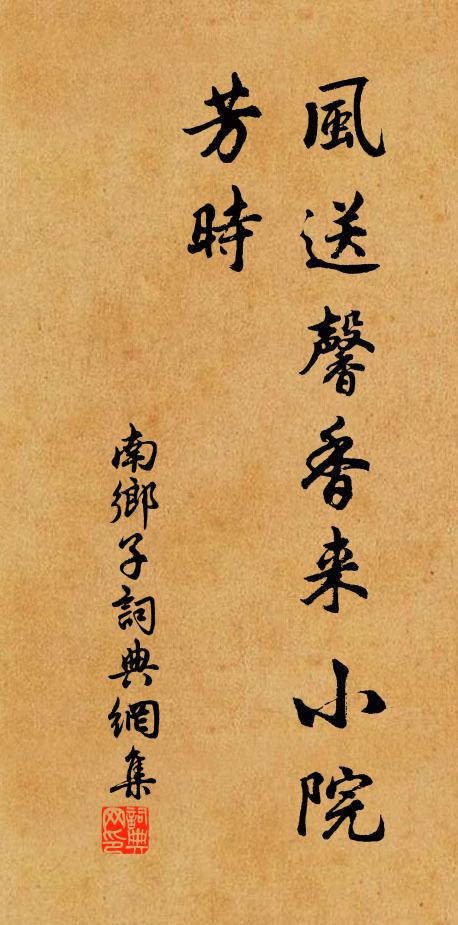 風送馨香来小院
芳時
南鄉子詞典網集
詞典网印